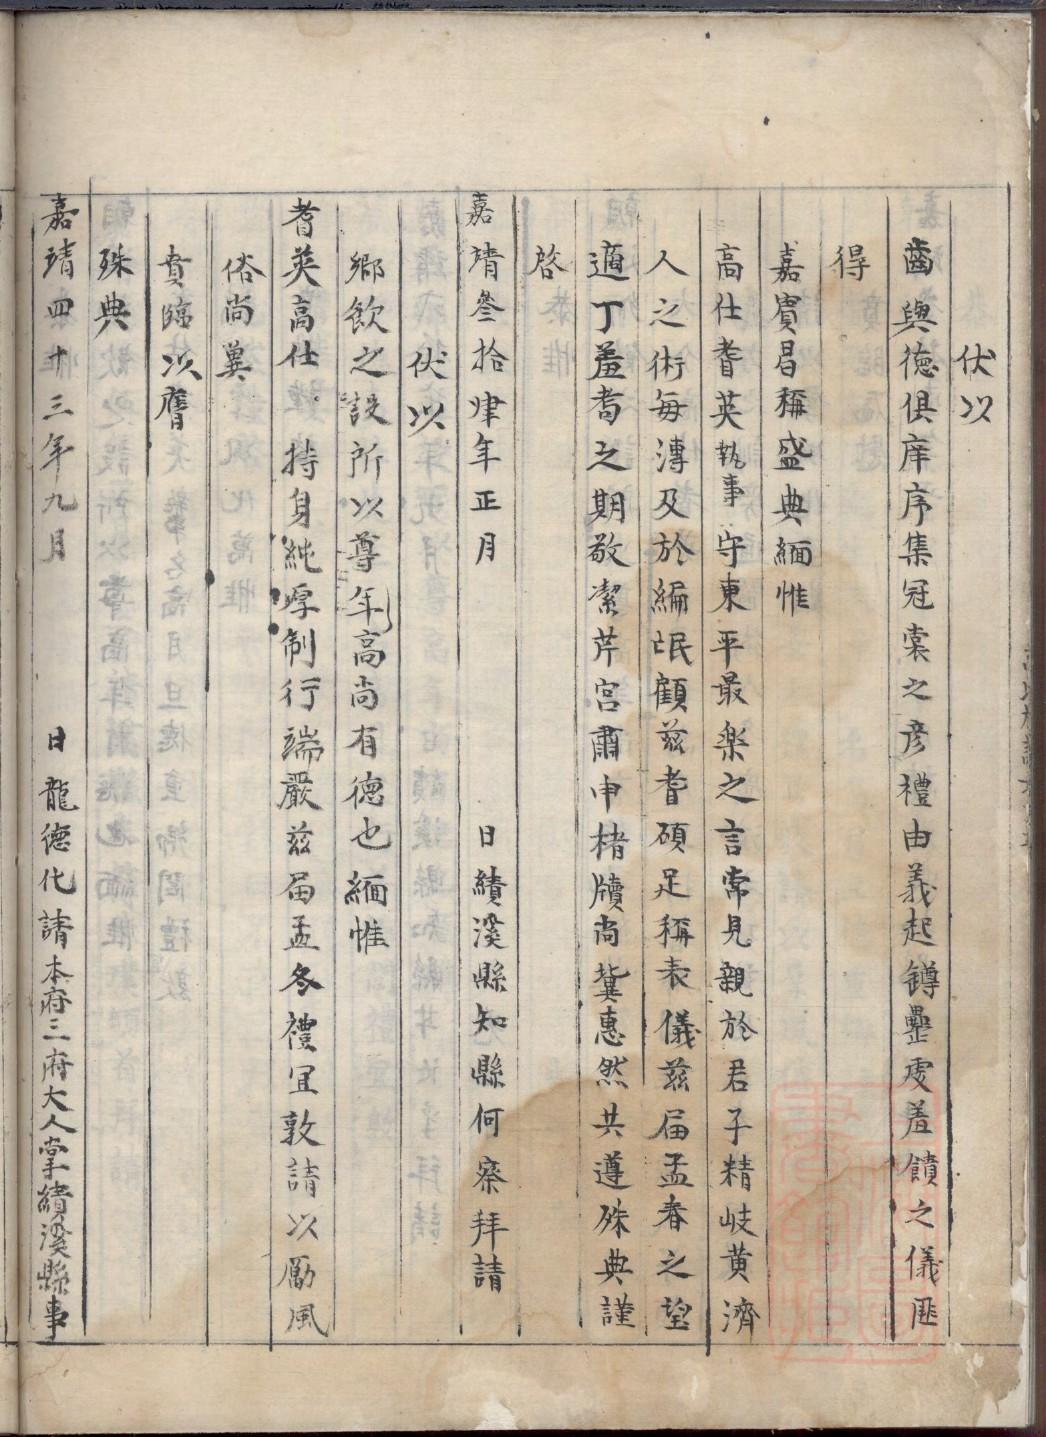 伏以
齒與德俱庠序集冠裳之彦禮由義起罇罍虔羞饋之儀匪
得
嘉賓曷稱盛典緬惟
高仕耆英執事守東平最楽之言常見親於君子精岐黄濟
人之術每溥及於編氓顧茲耆碩足稱表儀茲届孟春之望
適丁羞耇之期敬潔芹宮肅申楮牘尚冀惠然共遵殊典謹
啓
嘉靖叁拾肆年正月 日績溪縣知縣何 拜請
伏以
鄉飲之設所以尊年高尚有德也緬惟
耆英高仕 持身純厚制行端嚴茲届孟冬禮宜敦請以勵風
俗尚冀
賁臨以膺
殊典
嘉靖四十三年九月 日龍德代請本府三府大人掌績溪縣事